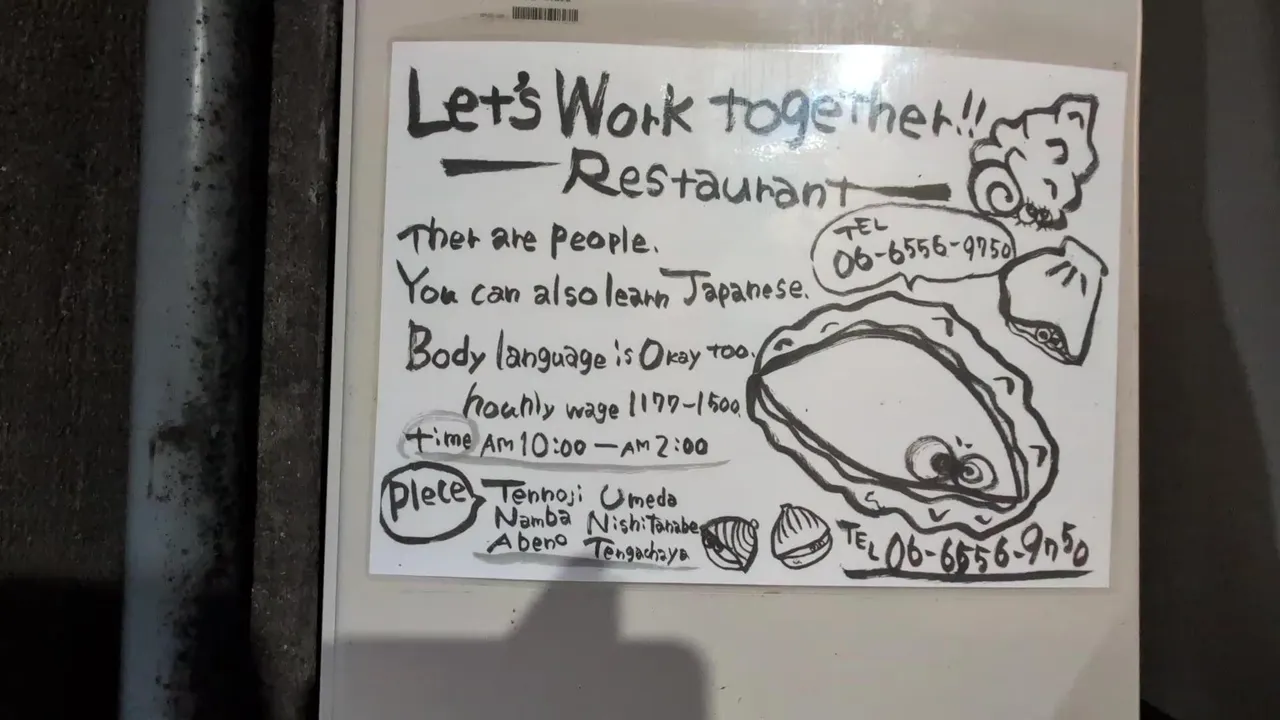 Let's Work together!!
Restaurant
Ther are people.
You can also learn Japanese.
Body language is Okay too.
hourly wage 1177-1500
time AM 10:00 — AM 2:00
Plece
Tennoji Umeda
Namba Nishitanabe
Abeno Tengachaya
TEL
06-6556-9750
TEL 06-6556-9750